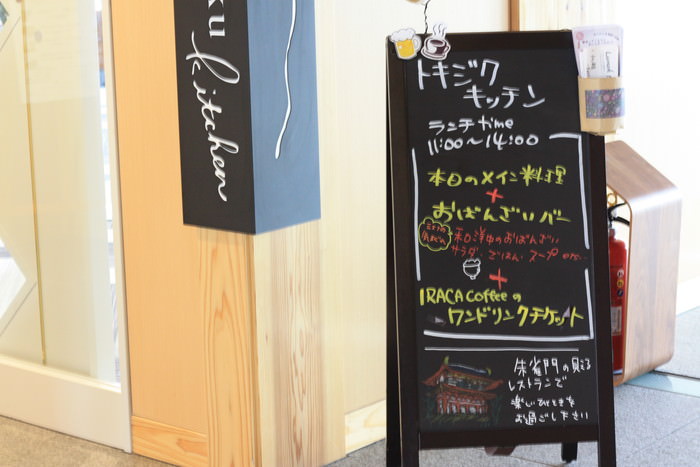 ku kitchen
トキジク
キッチン
ランチtime
11:00〜14:00
本日のメイン料理
+
おばんざいバー
和洋中のおばんざい
サラダ・ごはん・スープetc...
+
IRACA Coffeeの
ワンドリンクチケット
朱雀門の見える
レストランで
楽しいひとときを
お過ごし下さい